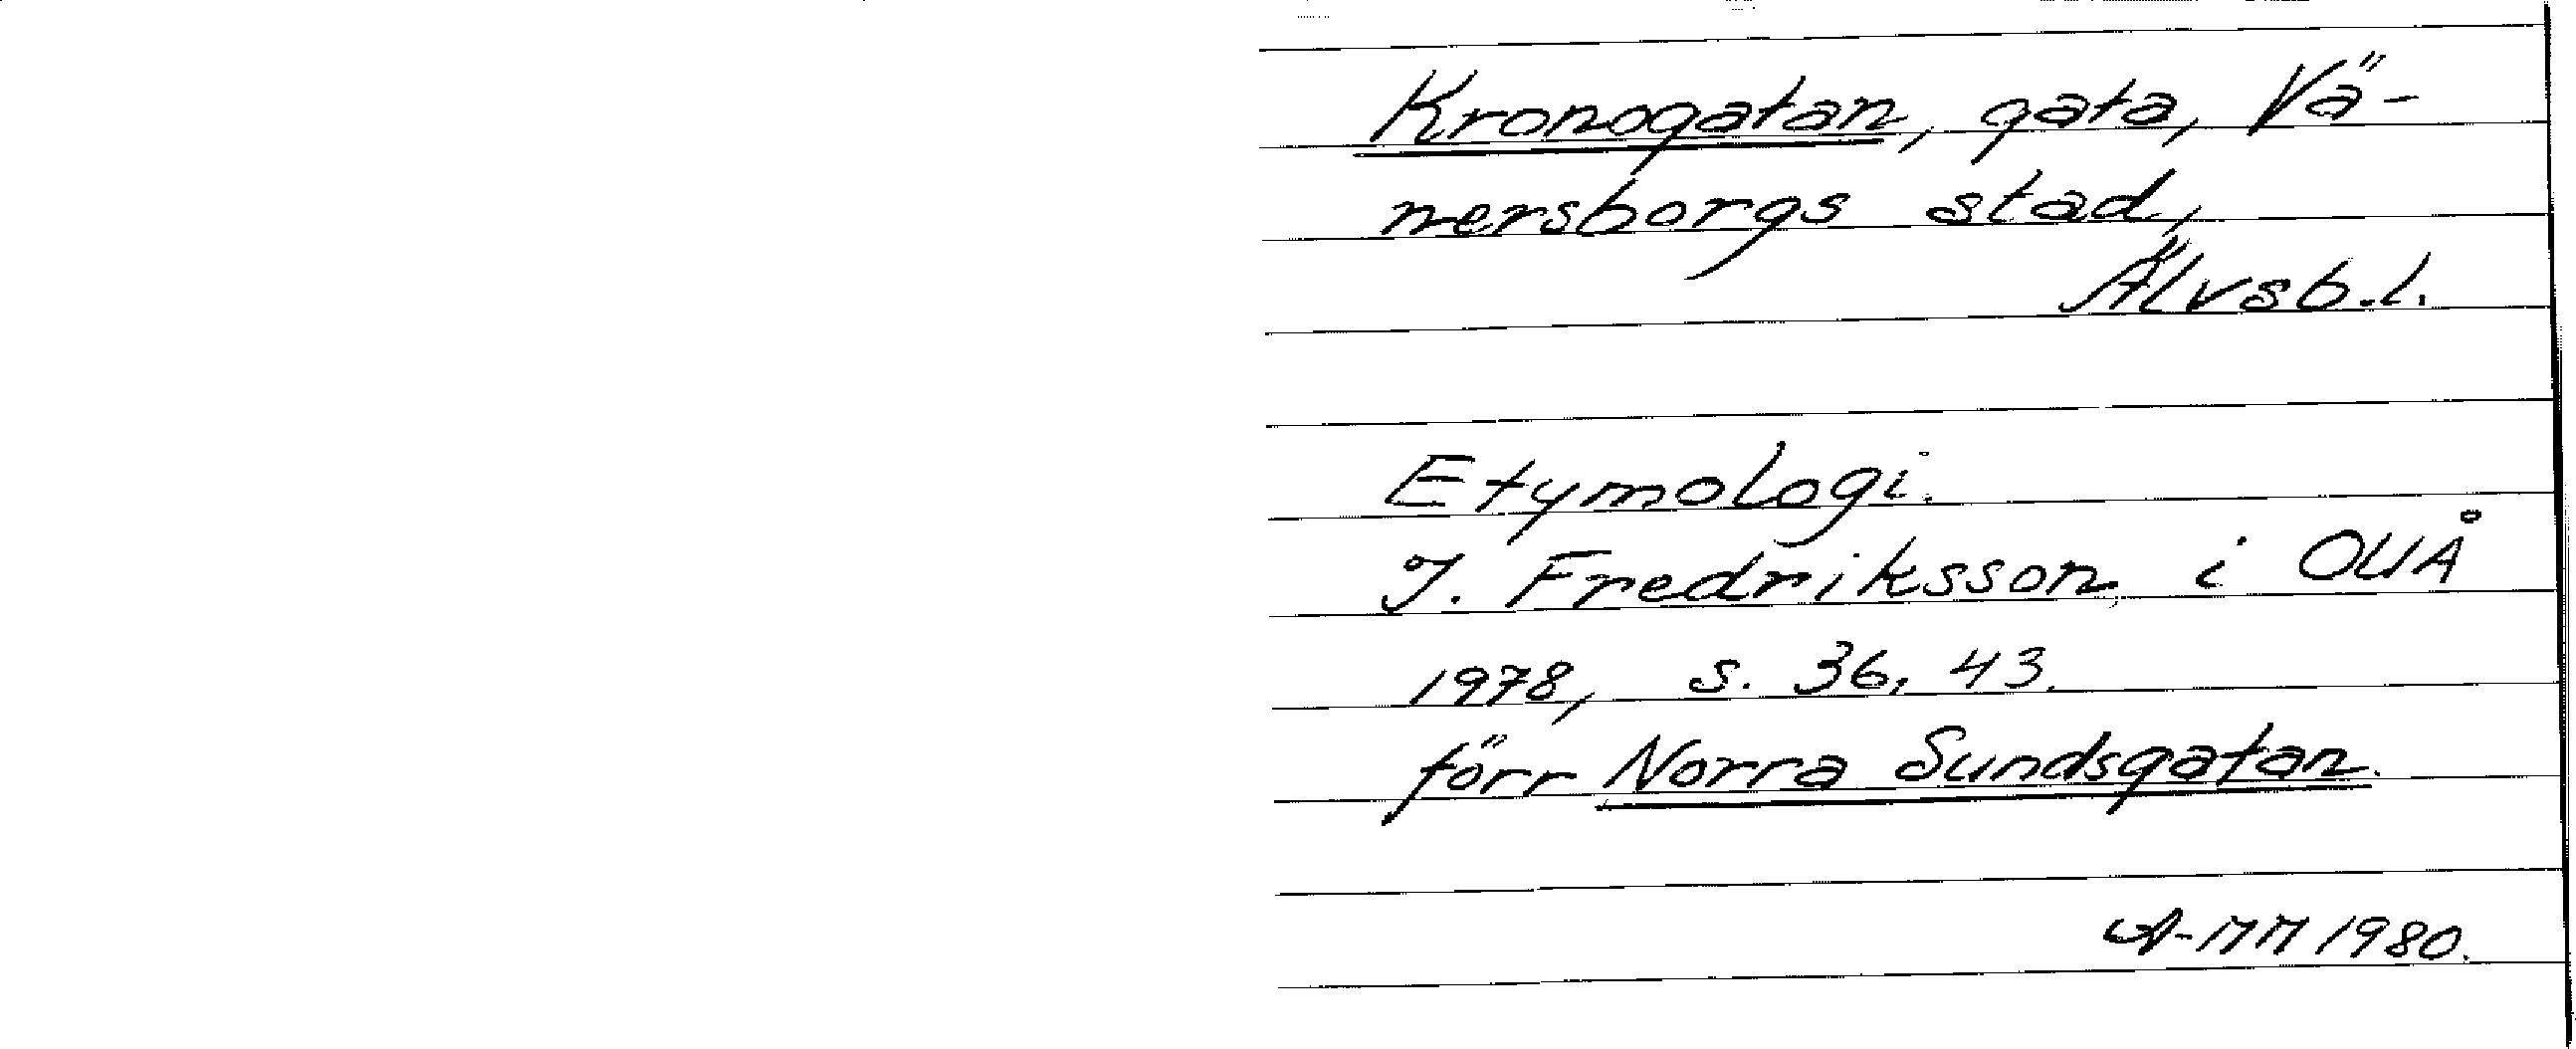 Kronogatan, gata, Vä-
nersborgs stad,
Älvsb.l.
Etymologi.
I. Fredriksson i OUÅ
1978, s. 36, 43.
förr Norra Sundsgatan.
A-MM 1980.